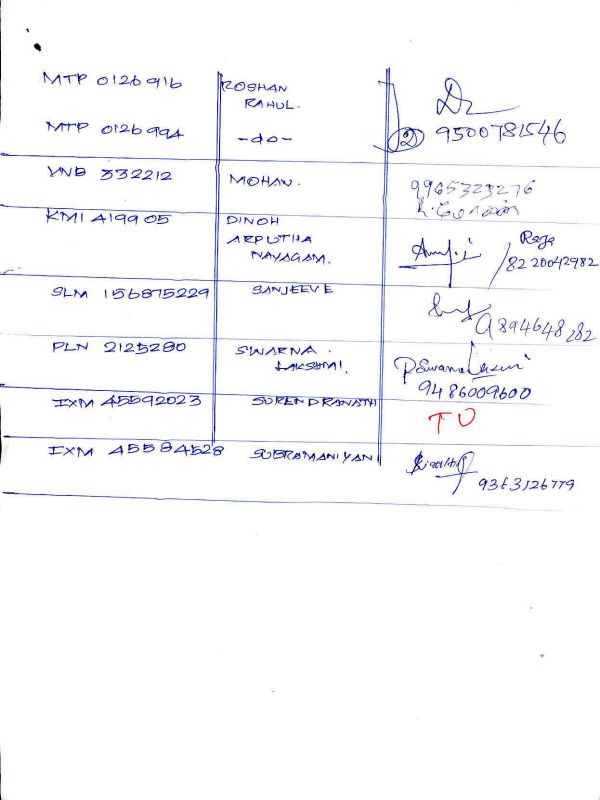 MTP 0126916 ROSHAN
RAHUL.
MTP 0126994 -do- 2 9500781546
VNB 332212 MOHAN. 9965323276
KMI 419905 DINOH
ARPUTHA Raja
NAYAGAM. / 8220042982
SLM 156875229 SANJEEVE
9894648282
PLN 2125280 SWARNA.
LAKSHMI. P.Swarnalaxmi
9486009600
IXM 45592023 SURENDRANATH TU
IXM 45584528 SUBRAMANIYAN
9363126779